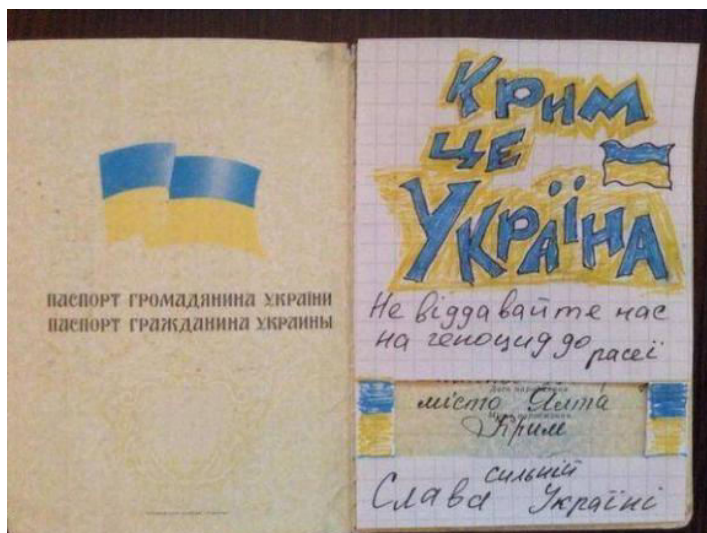 ПАСПОРТ ГРОМАДЯНИНА УКРАЇНИ
ПАСПОРТ ГРАЖДАНИНА УКРАИНЫ
Крим
це
Україна
Не віддавайте нас
на геноцид до расеї
Дата народження
місто Ялта
Крим
сильній
Слава Україні